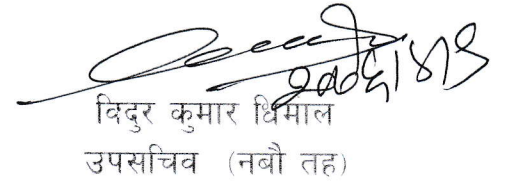 विदुर कुमार धिमाल
उपसचिव (नबौ तह)